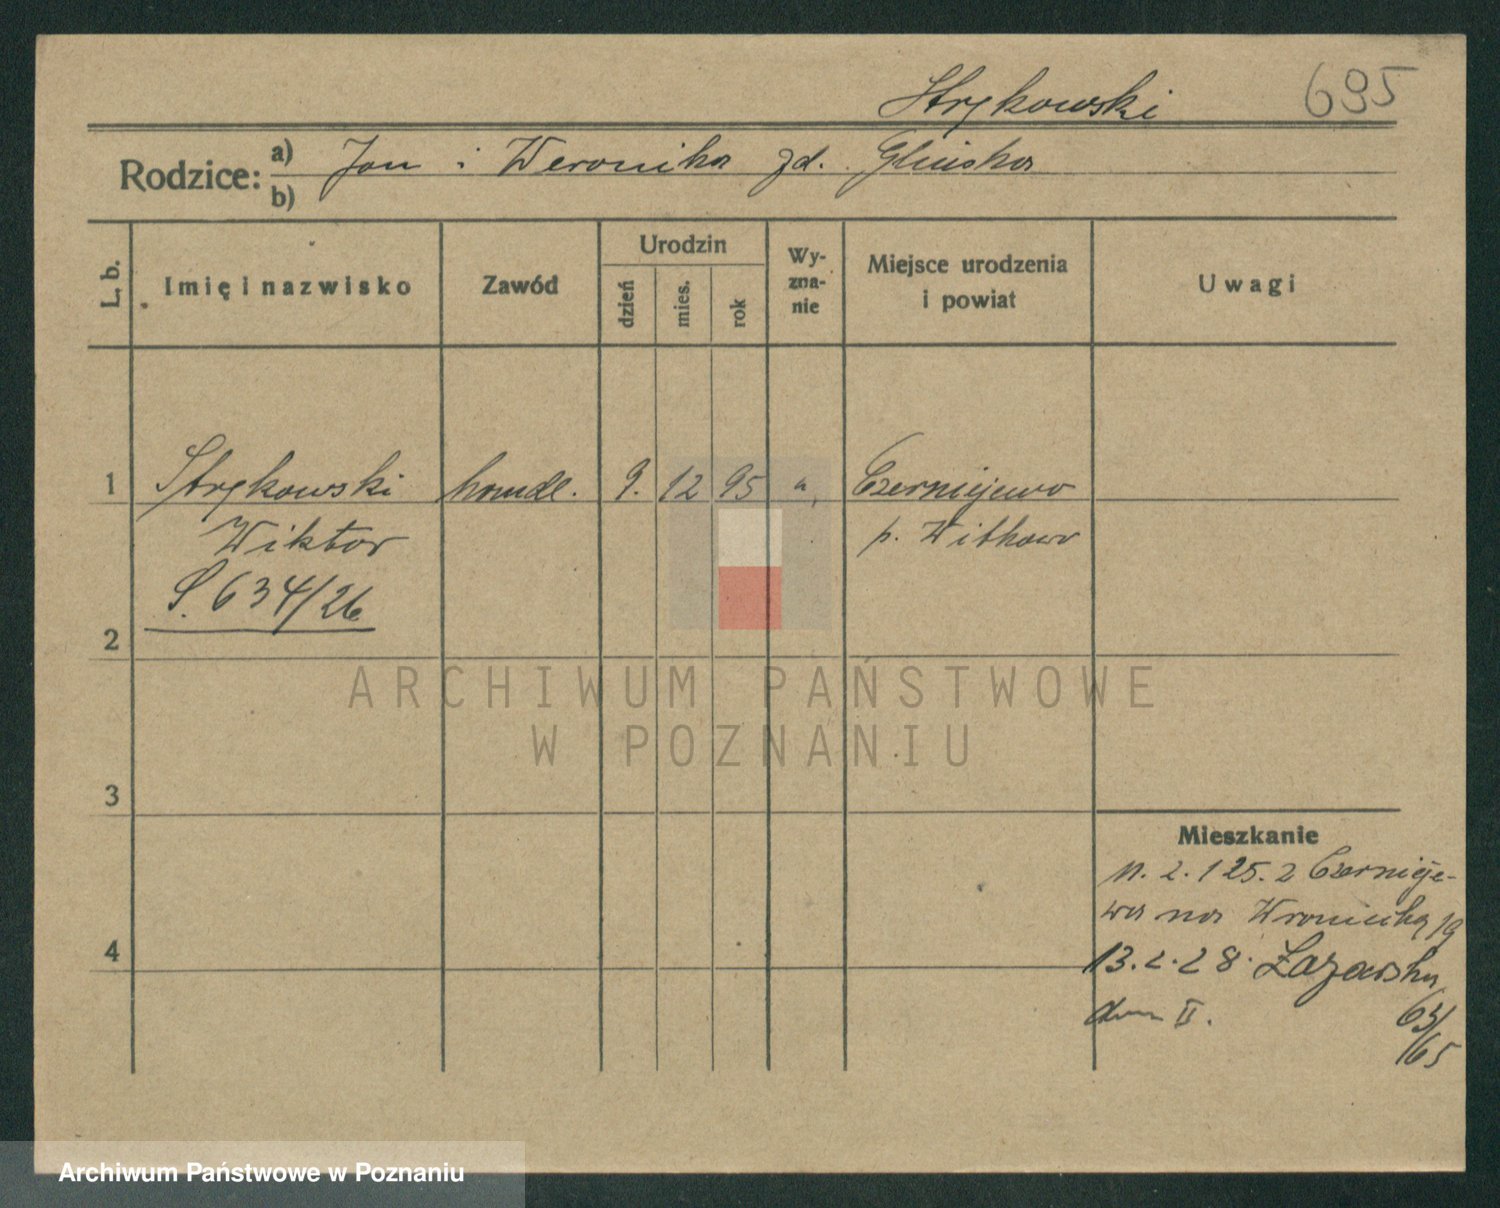 Strykowski 695
Rodzice: a) Jan i Weronika zd. Glinska
b)
L. b. Imię i nazwisko Zawód Urodzin dzień mies. rok Wyzna-nie Miejsce urodzenia i powiat Uwagi
1 Strykowski handl. 9. 12 95 Czerniejewo
Wiktor p. Witkowo
S. 634/26
2
ARCHIWUM PAŃSTWOWE
W POZNANIU
3
Mieszkanie
25. z Czernieje-
wa na Wroniecką 19
4
13.2.28. Łazarska
dom II. 63/65
Archiwum Państwowe w Poznaniu